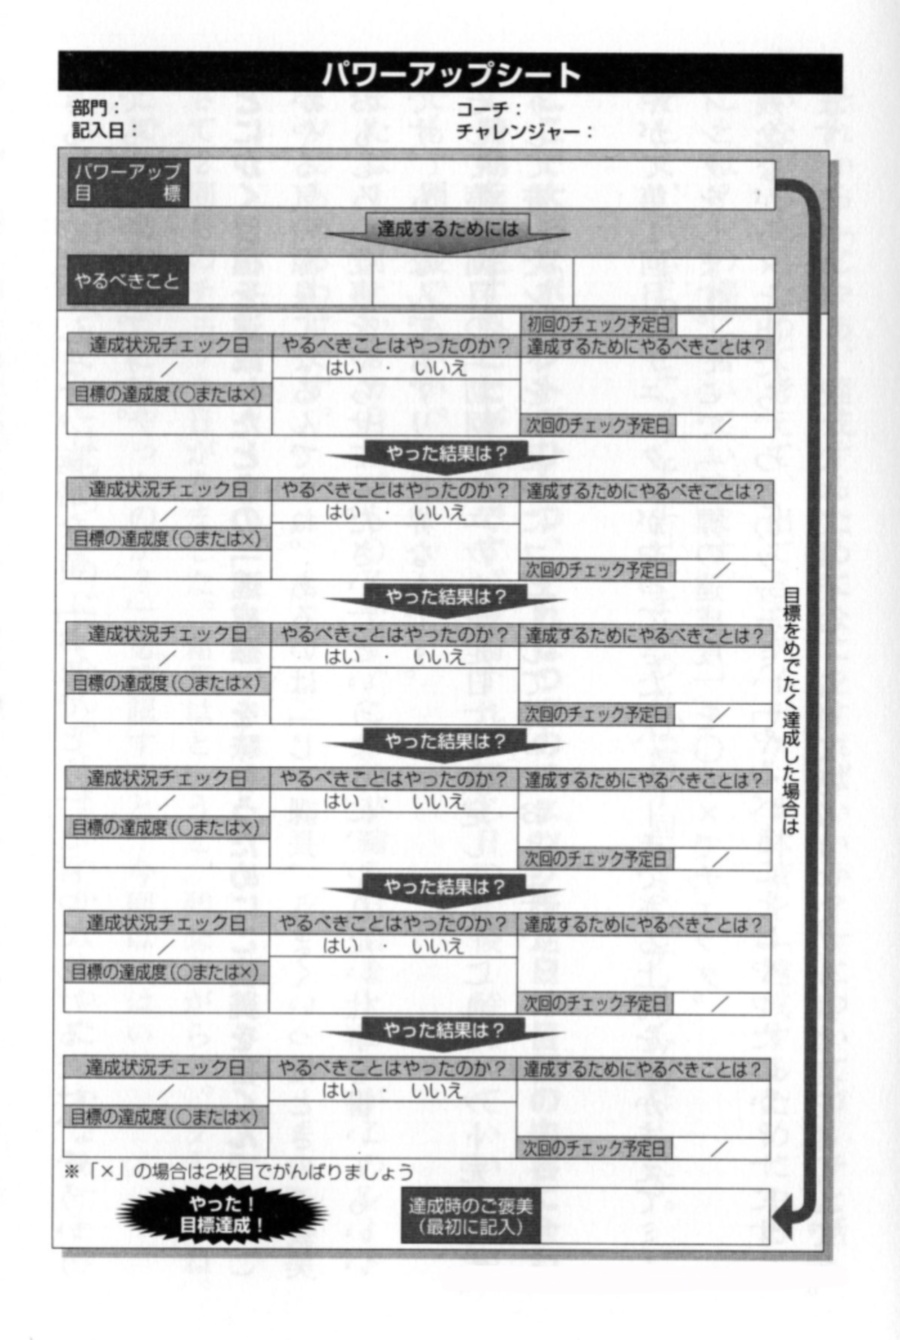 パワーアップシート
部門：
コーチ：
記入日：
チャレンジャー：
パワーアップ
目　　　標
達成するためには
やるべきこと
初回のチェック予定日　／
達成状況チェック日　やるべきことはやったのか？　達成するためにやるべきことは？
／　はい　・　いいえ
目標の達成度(○または×)
次回のチェック予定日　／
やった結果は？
達成状況チェック日　やるべきことはやったのか？　達成するためにやるべきことは？
／　はい　・　いいえ
目標の達成度(○または×)
次回のチェック予定日　／
やった結果は？
達成状況チェック日　やるべきことはやったのか？　達成するためにやるべきことは？
／　はい　・　いいえ
目標の達成度(○または×)
次回のチェック予定日　／
やった結果は？
達成状況チェック日　やるべきことはやったのか？　達成するためにやるべきことは？
／　はい　・　いいえ
目標の達成度(○または×)
次回のチェック予定日　／
やった結果は？
達成状況チェック日　やるべきことはやったのか？　達成するためにやるべきことは？
／　はい　・　いいえ
目標の達成度(○または×)
次回のチェック予定日　／
やった結果は？
達成状況チェック日　やるべきことはやったのか？　達成するためにやるべきことは？
／　はい　・　いいえ
目標の達成度(○または×)
次回のチェック予定日　／
目標をめでたく達成した場合は
※「×」の場合は2枚目でがんばりましょう
やった！
目標達成！
達成時のご褒美
（最初に記入）